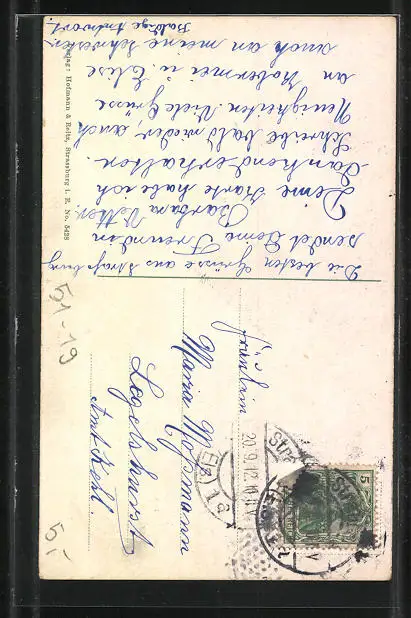 Die besten Grüsse aus Straßburg
sendet Deine Freundin
Barbara Vetter.
Deine Karte habe ich
dankend erhalten.
Schreibe bald wieder, auch
Neuigkeiten. Viele Grüsse
an u. Elise
auch an meine Schwester.
Baldige Antwort.
Verlag: Hofmann & Reitz, Strassburg i. E. No. 5428
Fräulein
Maria
Legelshurst
Amt Kehl.
20.9.12.
(Els)
1 a
5
51-19
5,-